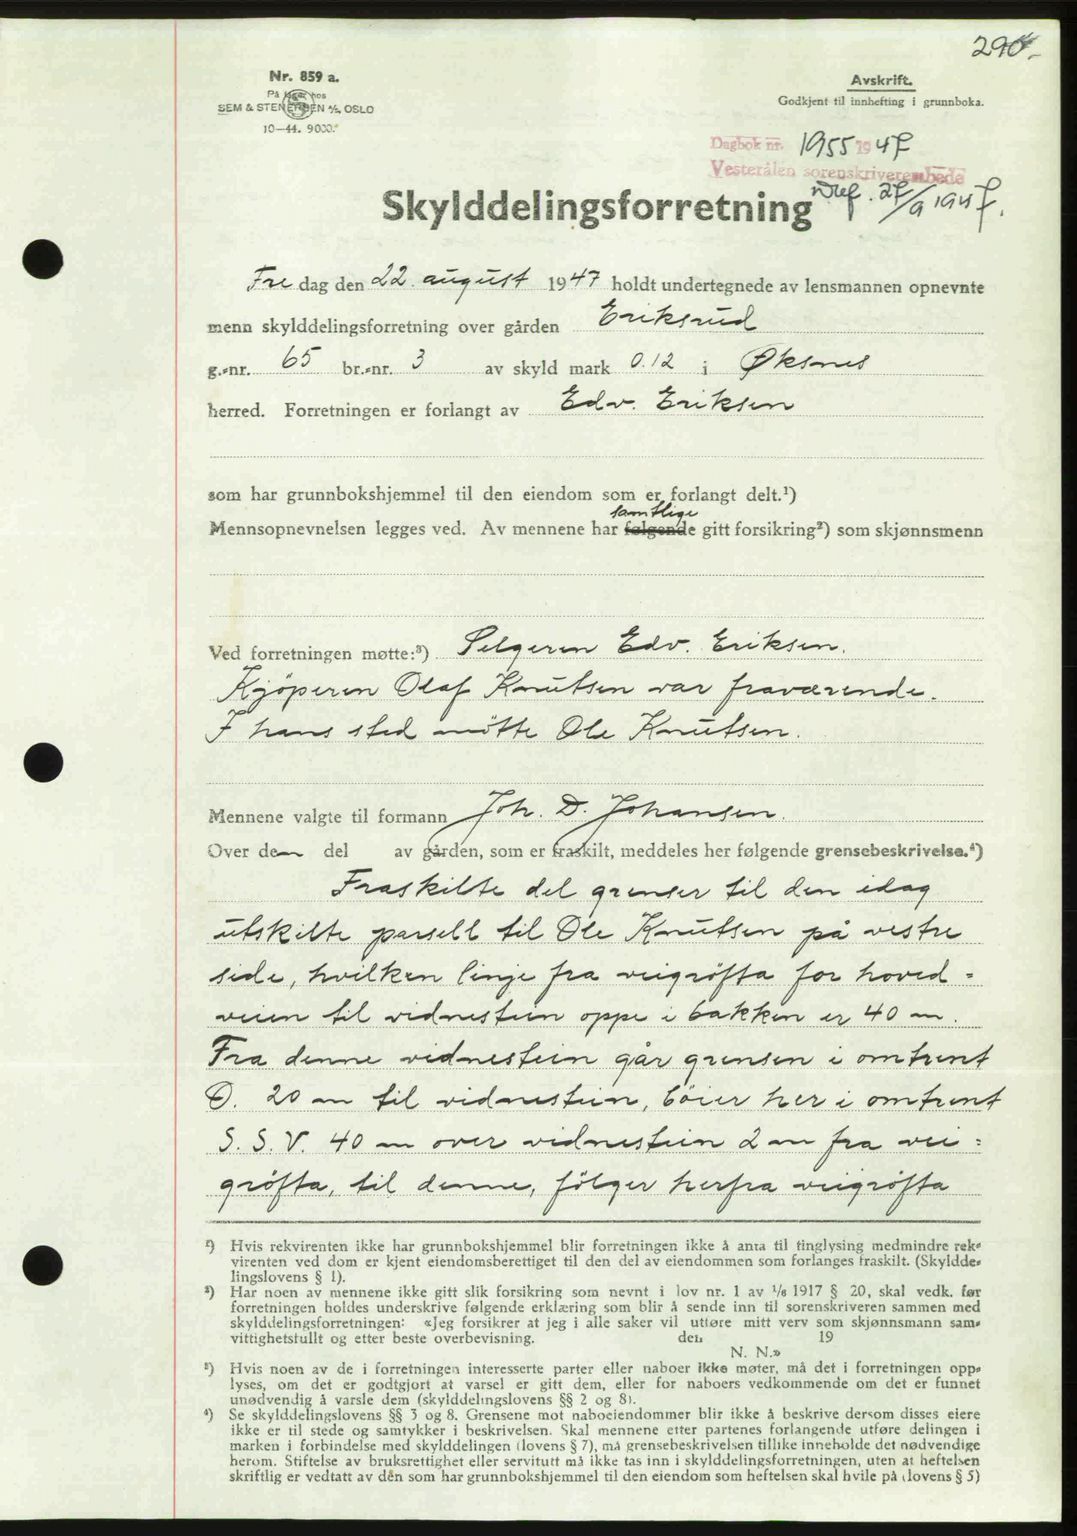 290.-
Nr. 859 a.
På lager hos
SEM & STENERSEN A/S, OSLO
10-44. 9000.
Avskrift.
Godkjent til innhefting i grunnboka.
Dagbok nr. 1955 1947
Vesterålen sorenskriverembede
27/9 1947.
Skylddelingsforretning
Fredag den 22. august 1947 holdt undertegnede av lensmannen opnevnte
menn skylddelingsforretning over gården Eriksrud
g.-nr. 65 br.-nr. 3 av skyld mark 0.12 i Øksnes
herred. Forretningen er forlangt av Edv. Eriksen
som har grunnbokshjemmel til den eiendom som er forlangt delt.¹)
samtlige
Mennsopnevnelsen legges ved. Av mennene har følgende gitt forsikring²) som skjønnsmenn
Ved forretningen møtte:³) Selgeren Edv. Eriksen.
Kjöperen Olaf Knutsen var fraværende.
I hans sted mötte Ole Knutsen.
Mennene valgte til formann Joh. D. Johansen.
Over den del av gården, som er fraskilt, meddeles her følgende grensebeskrivelse.⁴)
Fraskilte del grenser til den idag
utskilte parsell til Ole Knutsen på vestre
side, hvilken linje fra veigröfta for hoved=
veien til vidnestein oppe i bakken er 40 m.
Fra denne vidnestein går grensen i omtrent
Ö. 20 m til vidnestein, böier her i omtrent
S. S. V. 40 m over vidnestein 2 m fra vei=
gröfta, til denne, fölger herfra veigröfta
¹) Hvis rekvirenten ikke har grunnbokshjemmel blir forretningen ikke å anta til tinglysing medmindre rek-
virenten ved dom er kjent eiendomsberettiget til den del av eiendommen som forlanges fraskilt. (Skyldde-
lingslovens § 1).
²) Har noen av mennene ikke gitt slik forsikring som nevnt i lov nr. 1 av 1/6 1917 § 20, skal vedk. før
forretningen holdes underskrive følgende erklæring som blir å sende inn til sorenskriveren sammen med
skylddelingsforretningen: «Jeg forsikrer at jeg i alle saker vil utføre mitt verv som skjønnsmann sam-
vittighetsfullt og etter beste overbevisning. den 19
N. N.»
³) Hvis noen av de i forretningen interesserte parter eller naboer ikke møter, må det i forretningen opp-
lyses, om det er godtgjort at varsel er gitt dem, eller for naboers vedkommende om det er funnet
unødvendig å varsle dem (skylddelingslovens §§ 2 og 8).
⁴) Se skylddelingslovens §§ 3 og 8. Grensene mot naboeiendommer blir ikke å beskrive dersom disses eiere
ikke er til stede og samtykker i beskrivelsen. Skal mennene etter partenes forlangende utføre delingen i
marken i forbindelse med skylddelingen (lovens § 7), må grensebeskrivelsen tillike inneholde det nødvendige
herom. Stiftelse av bruksrettighet eller servitutt må ikke tas inn i skylddelingsforretningen, uten at heftelsen
skriftlig er vedtatt av den som har grunnbokshjemmel til den eiendom som heftelsen skal hvile på (lovens § 5)